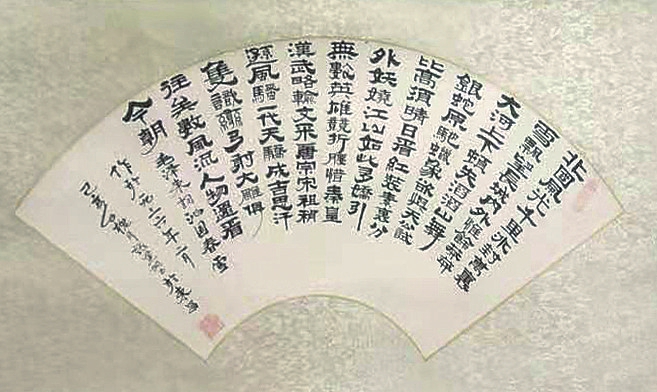 北國風光千里冰封萬裏
雪飄望長城內外惟餘莽莽
大河上下頓失滔滔山舞
銀蛇原馳蠟象欲與天公試
比高須晴日看紅裝素裹分
外妖嬈江山如此多嬌引
無數英雄競折腰惜秦皇
漢武略輸文采唐宗宋祖稍
遜風騷一代天驕成吉思汗
隻識彎弓射大雕俱
往矣數風流人物還看
今朝
毛澤東詞沁園春雪
作於一九三六年二月
己亥